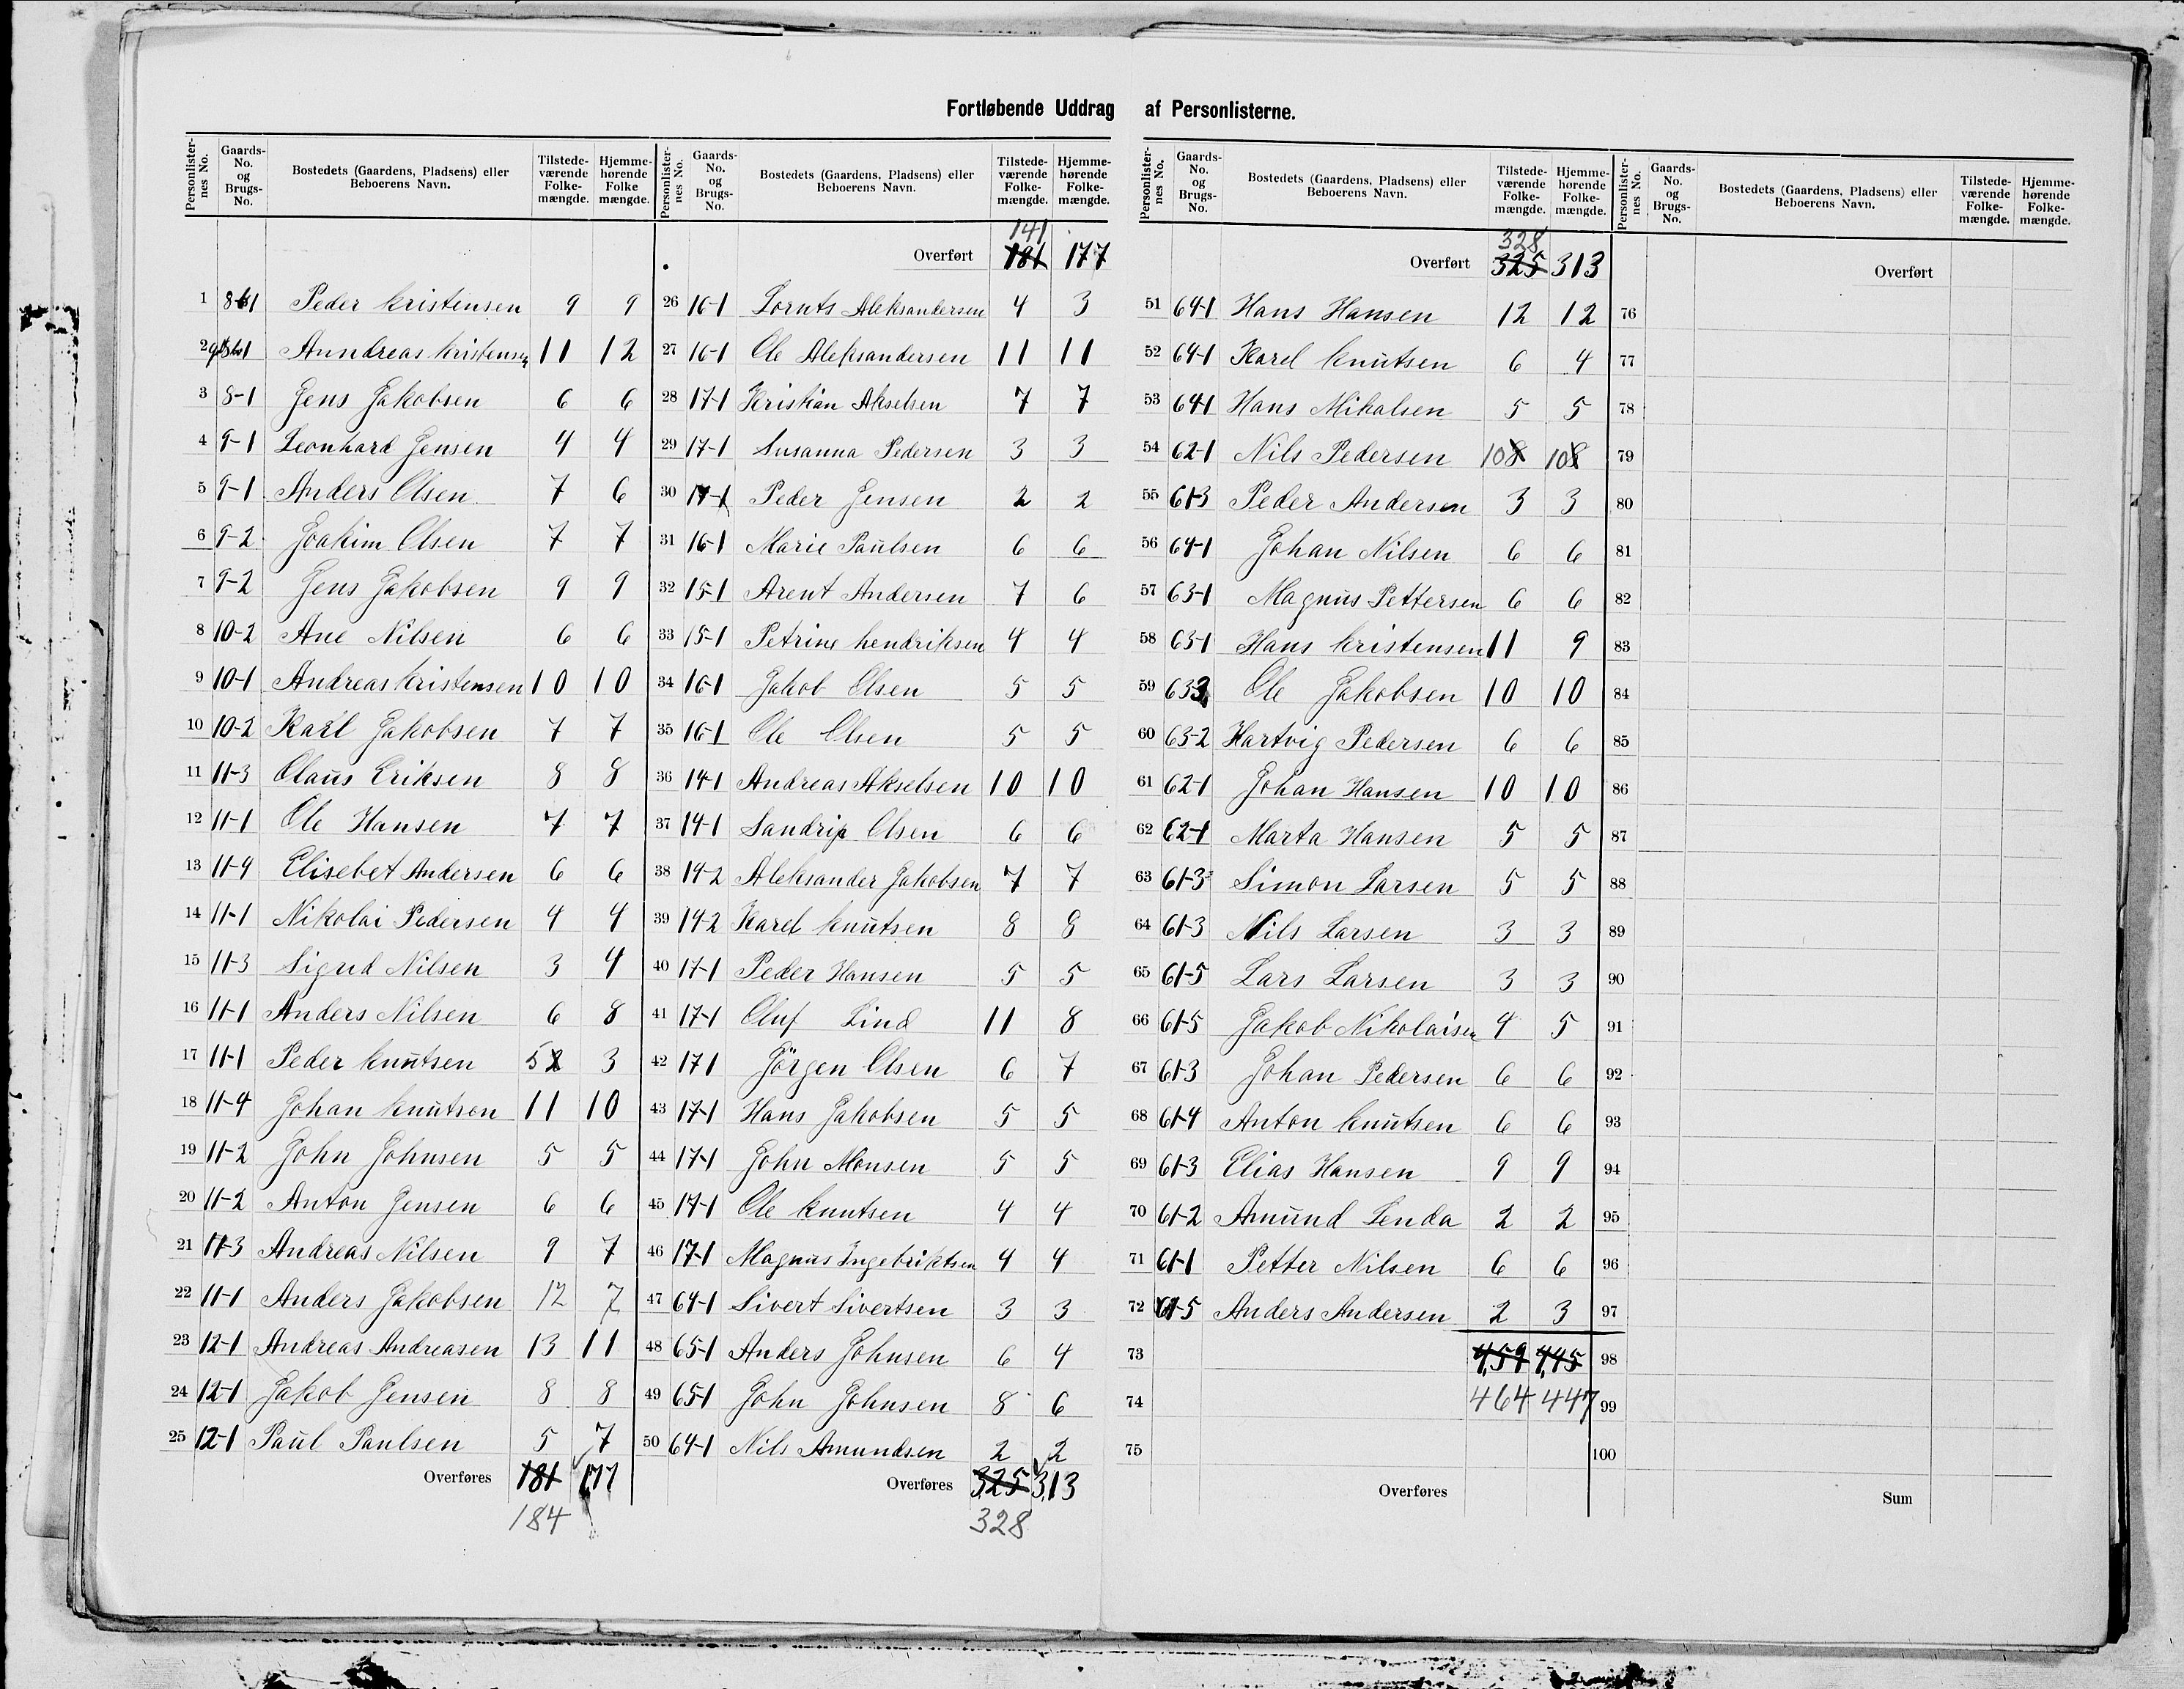 Fortløbende Uddrag af Personlisterne.
Personlister-nes No. Gaards-No. og Brugs-No. Bostedets (Gaardens, Pladsens) eller Beboerens Navn. Tilstede-værende Folke-mængde. Hjemme-hørende Folke mængde.
1 8-1 Peder Kristensen 9 9
2 Anndreas Kristensen 11 12
3 8-1 Jens Jakobsen 6 6
4 9-1 Leonhard Jensen 4 4
5 9-1 Anders Olsen 7 6
6 9-2 Joakim Olsen 7 7
7 9-2 Jens Jakobsen 9 9
8 10-2 Ane Nilsen 6 6
9 10-1 Andreas Kristensen 10 10
10 10-2 Karl Jakobsen 7 7
11 11-3 Olaus Eriksen 8 8
12 11-1 Ole Hansen 7 7
13 11-4 Elisebet Andersen 6 6
14 11-1 Nikolai Pedersen 4 4
15 11-3 Sigrid Nilsen 3 4
16 11-1 Anders Nilsen 6 8
17 11-1 Peder Knutsen 5 2 3
18 11-4 Johan Knutsen 11 10
19 11-2 John Johnsen 5 5
20 11-2 Anton Jensen 6 6
21 11-3 Andreas Nilsen 9 7
22 11-1 Anders Jakobsen 12 7
23 12-1 Andreas Andreasen 13 11
24 12-1 Jakob Jensen 8 8
25 12-1 Paul Paulsen 5 7
Overføres 181 177
184
Personlister-nes No. Gaards-No. og Brugs-No. Bostedets (Gaardens, Pladsens) eller Beboerens Navn. Tilstede-værende Folke-mængde. Hjemme-hørende Folke-mængde.
141
Overført 181 177
26 16-1 Lornts Aleksandersen 4 3
27 16-1 Ole Aleksandersen 11 11
28 17-1 Kristian Akselsen 7 7
29 17-1 Susanna Pedersen 3 3
30 17-1 Peder Jensen 2 2
31 16-1 Marie Paulsen 6 6
32 15-1 Arent Andersen 7 6
33 15-1 Petrine hendriksen 4 4
34 16-1 Jakob Olsen 5 5
35 16-1 Ole Olsen 5 5
36 14-1 Andreas Akselsen 10 10
37 14-1 Olsen 6 6
38 14-2 Aleksander Jakobsen 7 7
39 14-2 Karel Knutsen 8 8
40 17-1 Peder Hansen 5 5
41 17-1 Oluf Lind 11 8
42 17 1 Jörgen Olsen 6 7
43 17-1 Hans Jakobsen 5 5
44 17-1 John Monsen 5 5
45 17-1 Ole Knutsen 4 4
46 17-1 Magnus Ingebriktsen 4 4
47 64-1 Sivert Sivertsen 3 3
48 65-1 Anders Johnsen 6 4
49 65-1 John Johnsen 8 6
50 64-1 Nils Amundsen 2 2
Overføres 325 313
328
Personlister-nes No. Gaards-No. og Brugs-No. Bostedets (Gaardens, Pladsens) eller Beboerens Navn. Tilstede-værende Folke-mængde. Hjemme-hørende Folke-mængde.
328
Overført 325 313
51 64-1 Hans Hansen 12 12
52 64-1 Karel Knutsen 6 4
53 64-1 Hans Mikalsen 5 5
54 62-1 Nils Pedersen 10 8 10 8
55 61-3 Peder Andersen 3 3
56 64-1 Johan Nilsen 6 6
57 63-1 Magnus Pettersen 6 6
58 63-1 Hans Kristensen 11 9
59 63-3 Ole Jakobsen 10 10
60 63-2 Hartvig Pedersen 6 6
61 62-1 Johan Hansen 10 10
62 62-1 Marta Hansen 5 5
63 61-3 Simon Larsen 5 5
64 61-3 Nils Larsen 3 3
65 61-5 Lars Larsen 3 3
66 61-5 Jakob Nikolaisen 4 5
67 61-3 Johan Pedersen 6 6
68 61-4 Anton Knutsen 6 6
69 61-3 Elias Hansen 9 9
70 61-2 Amund Lenda 2 2
71 61-1 Petter Nilsen 6 6
72 61-5 Anders Andersen 2 3
73 459 445
74 464 447
75
Overføres
Personlister-nes No. Gaards-No. og Brugs-No. Bostedets (Gaardens, Pladsens) eller Beboerens Navn. Tilstede-værende Folke-mængde. Hjemme-hørende Folke-mængde.
Overført
76
77
78
79
80
81
82
83
84
85
86
87
88
89
90
91
92
93
94
95
96
97
98
99
100
Sum